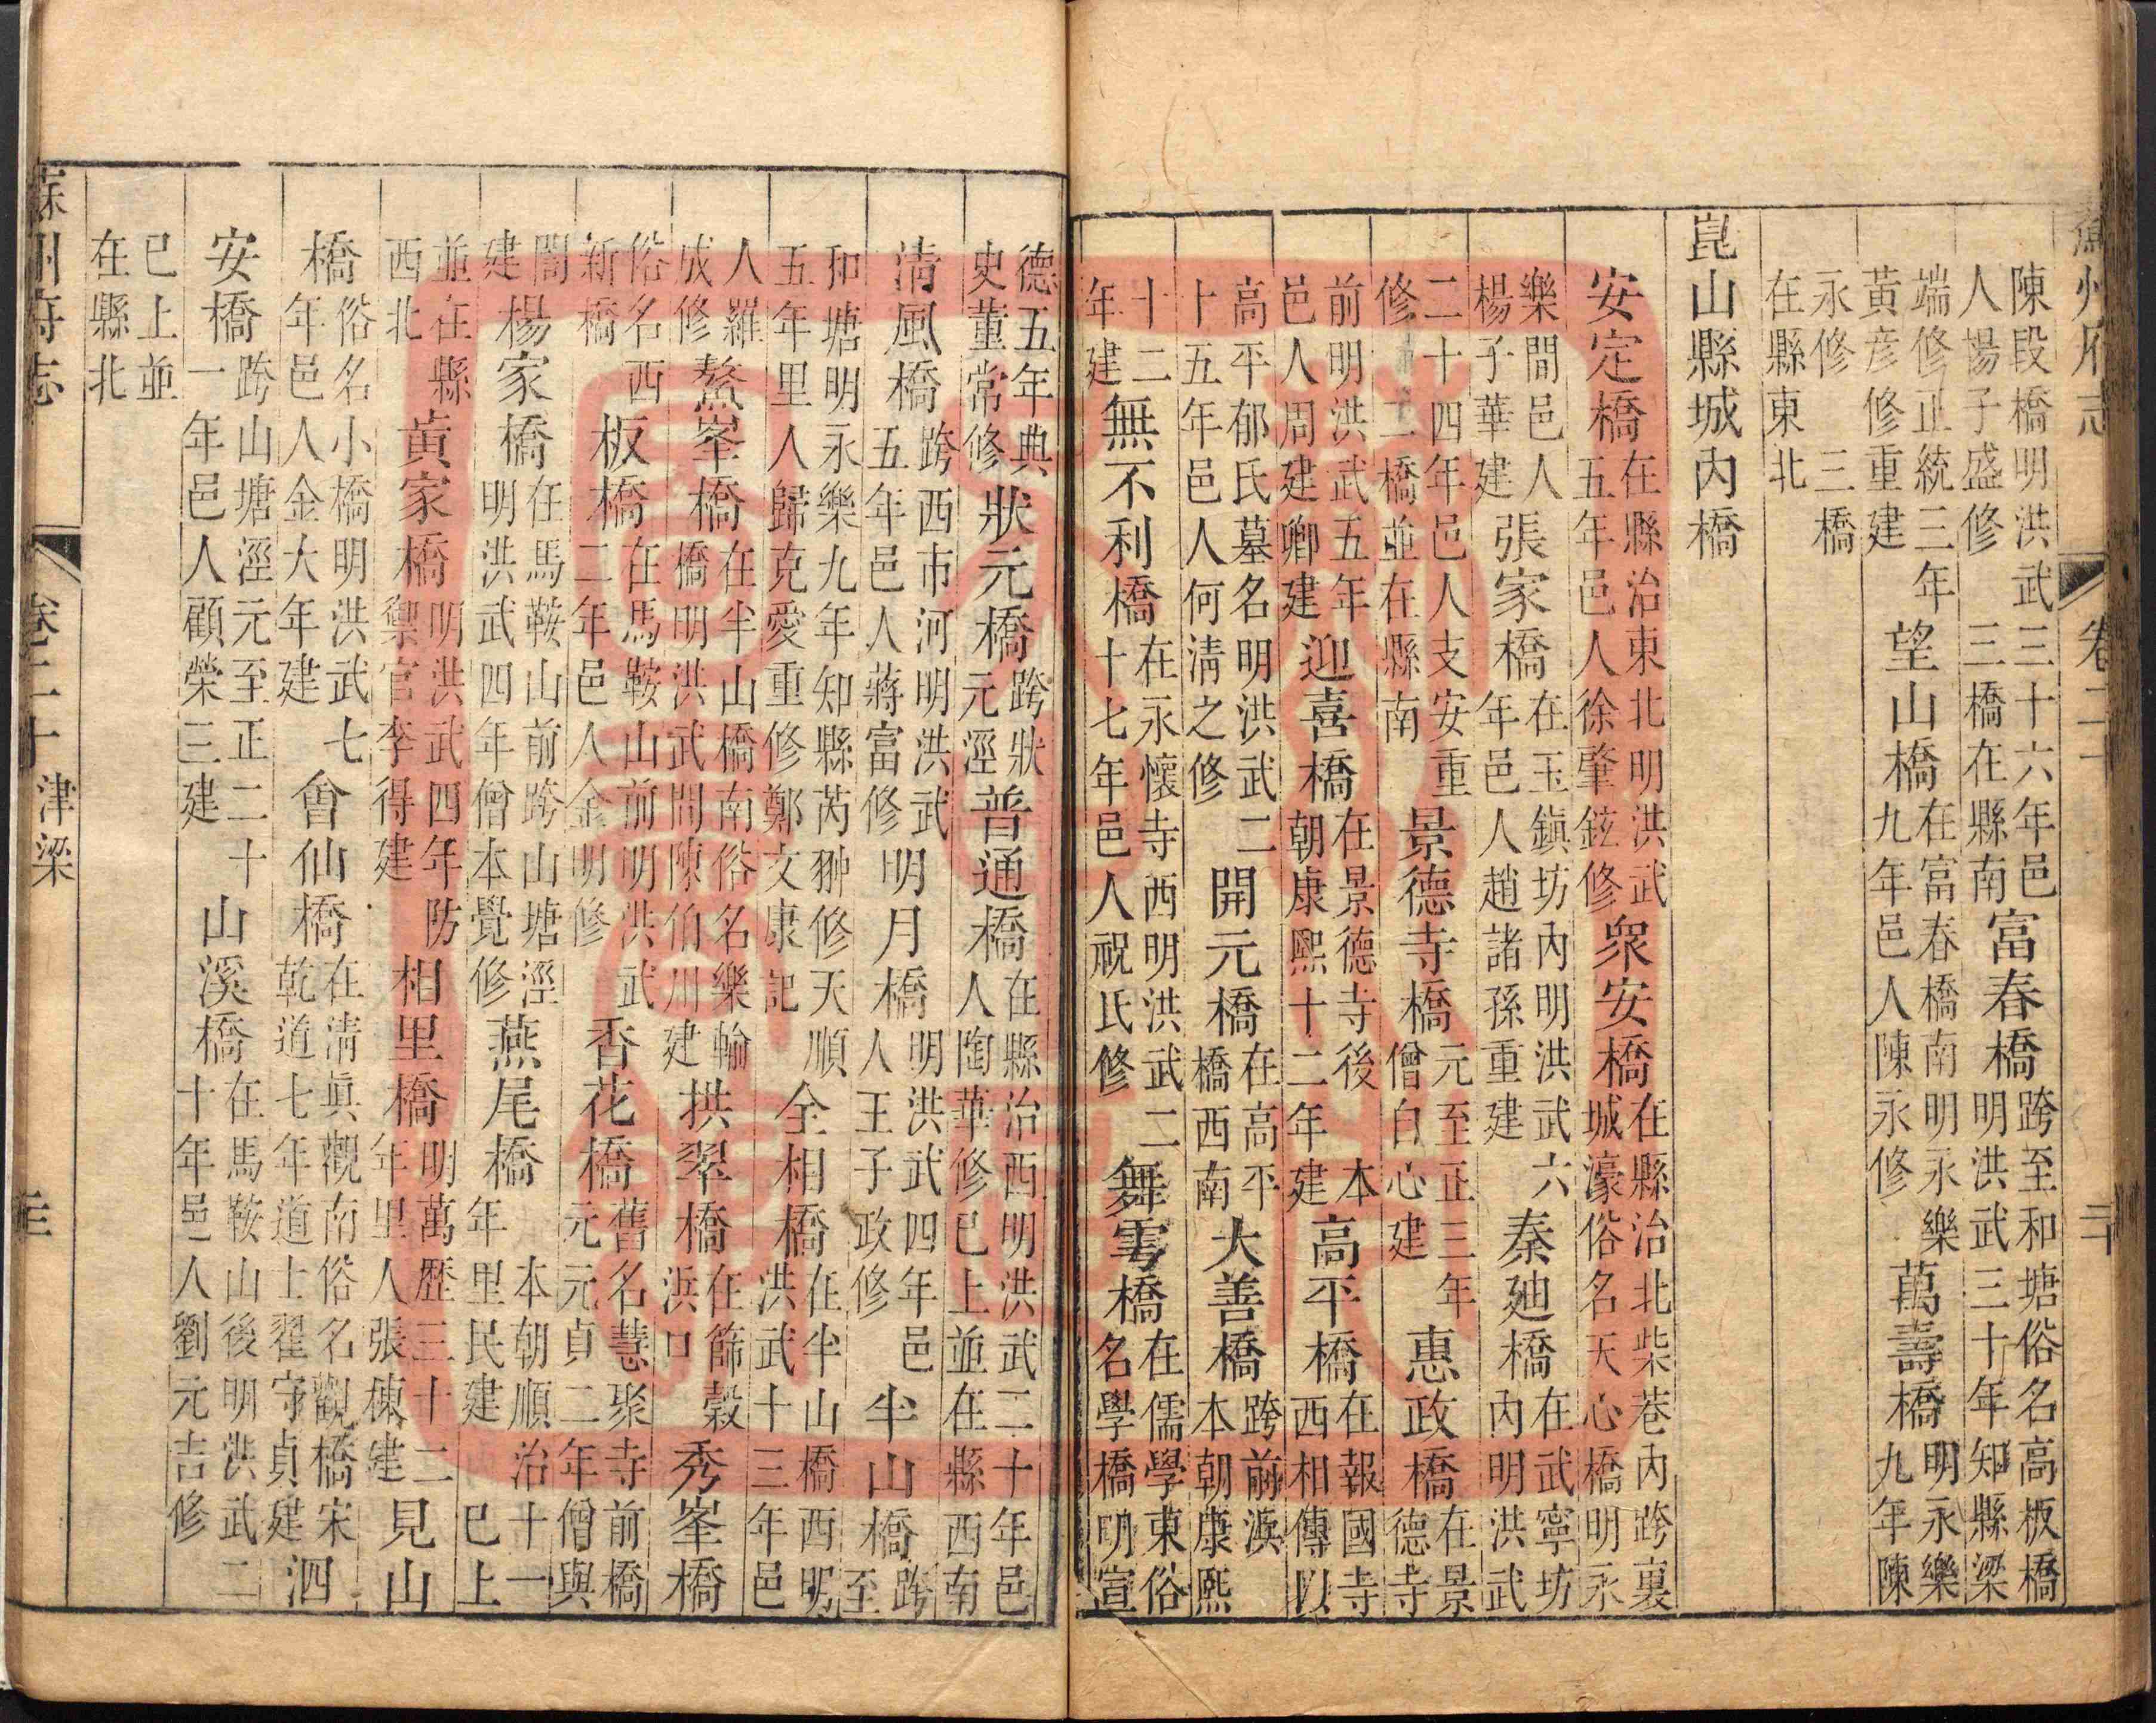 州府志　卷二十　二十
陳段橋明洪武三十六年邑
人楊子盛修　三橋在縣南
富春橋
跨至和塘俗名高板橋
明洪武三十年知縣梁
端修正統三年
黃彥修重建
望山橋
在富春橋南明永樂
九年邑人陳永修
萬壽橋
明永樂
九年陳
永修　三橋
在縣東北
崑山縣城內橋
安定橋
在縣治東北明洪武
五年邑人徐肇鉉修
衆安橋
在縣治北柴巷內跨裏
城濠俗名天心橋明永
樂間邑人
楊子華建
張家橋
在玉鎮坊內明洪武六
年邑人趙諸孫重建
秦廸橋
在武寧坊
內明洪武
二十四年邑人支安重
修　二橋並在縣南
景德寺橋
元至正三年
僧白心建
惠政橋
在景
德寺
前明洪武五年
邑人周建卿建
迎喜橋
在景德寺後　本
朝康熙十二年建
高平橋
在報國寺
西相傳以
高平郁氏墓名明洪武二
十五年邑人何清之修
開元橋
在高平
橋西南
大善橋
跨前浜
本朝康熙
十二
年建
無不利橋
在永懷寺西明洪武二
十七年邑人祝氏修
舞雩橋
在儒學東俗
名學橋明宣
德五年典
史董常修
狀元橋
跨狀
元涇
普通橋
在縣治西明洪武二十年邑
人陶華修已上並在縣西南
清風橋
跨西市河明洪武
五年邑人蔣富修
明月橋
明洪武四年邑
人王子政修
半山橋
跨
至
和塘明永樂九年知縣芮翀修天順
五年里人歸克愛重修鄭文康記
全相橋
在半山橋西明
洪武十三年邑
人羅
成修
鰲峯橋
在半山橋南俗名樂輸
橋明洪武間陳伯川建
拱翠橋
在篩穀
浜口
秀峯橋
俗名西
新橋
板橋
在馬鞍山前明洪武
二年邑人金明修
香花橋
舊名慧聚寺前橋
元元貞二年僧與
誾
建
楊家橋
在馬鞍山前跨山塘涇
明洪武四年僧本覺修
燕尾橋
本朝順治十一
年里民建　已上
並在縣
西北
黃家橋
明洪武四年防
禦官李得建
相里橋
明萬歷三十二
年里人張棟建
見山
橋
俗名小橋明洪武七
年邑人金大年建
會仙橋
在清眞觀南俗名觀橋宋
乾道七年道士翟守貞建
泗
安橋
跨山塘涇元至正二十
一年邑人顧榮三建
山溪橋
在馬鞍山後明洪武二
十年邑人劉元吉修
已上並
在縣北
蘇州府志　卷二十　津梁